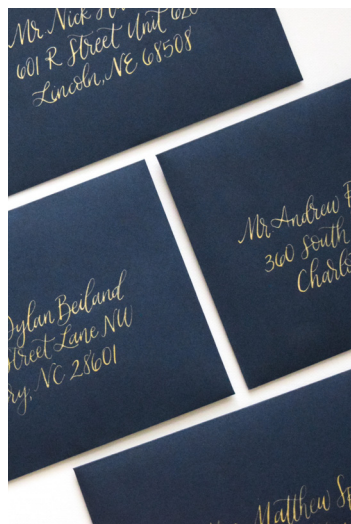 Mr. Nick
601 R Street Unit 620
Lincoln, NE 68508
Mr Andrew
360 South
Dylan Beiland
Street Lane NW
NC 28601
Matthew